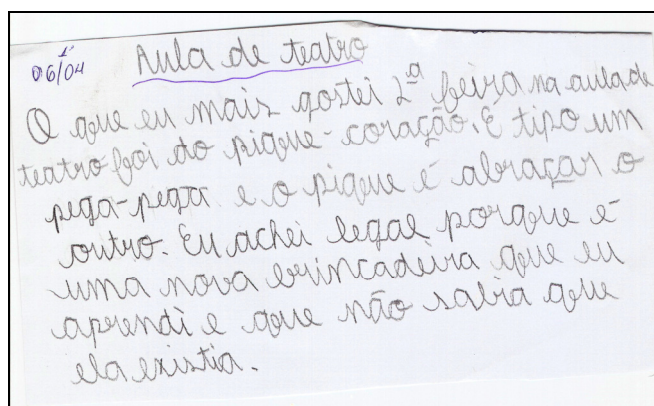 06/04 Aula de teatro
O que eu mais gostei 2ª feira na aula de
teatro foi do pique-coração. É tipo um
pega-pega e o pique é abraçar o
outro. Eu achei legal porque é
uma nova brincadeira que eu
aprendi e que não sabia que
ela existia.